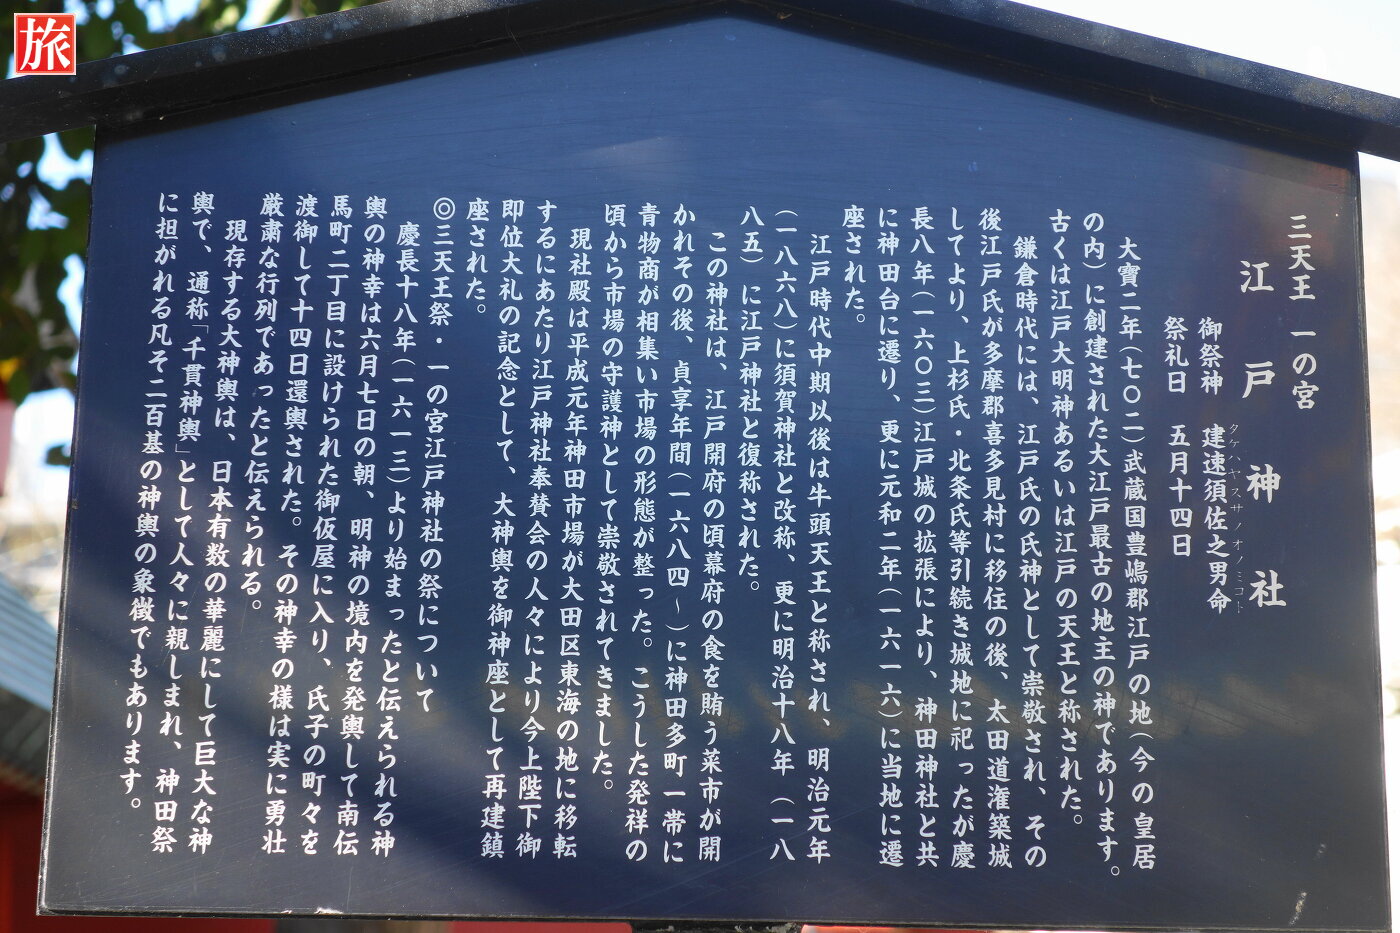 旅
三天王 一の宮
江戸神社
御祭神 建速須佐之男命
タケハヤスサノオノミコト
祭礼日 五月十四日
大寶二年(七〇二)武蔵国豊嶋郡江戸の地(今の皇居
の内)に創建された大江戸最古の地主の神であります。
古くは江戸大明神あるいは江戸の天王と称された。
鎌倉時代には、江戸氏の氏神として崇敬され、その
後江戸氏が多摩郡喜多見村に移住の後、太田道潅築城
してより、上杉氏・北条氏等引続き城地に祀ったが慶
長八年(一六〇三)江戸城の拡張により、神田神社と共
に神田台に遷り、更に元和二年(一六一六)に当地に遷
座された。
江戸時代中期以後は牛頭天王と称され、明治元年
(一八六八)に須賀神社と改称、更に明治十八年(一八
八五)に江戸神社と復称された。
この神社は、江戸開府の頃幕府の食を賄う菜市が開
かれその後、貞享年間(一六八四~)に神田多町一帯に
青物商が相集い市場の形態が整った。こうした発祥の
頃から市場の守護神として崇敬されてきました。
現社殿は平成元年神田市場が大田区東海の地に移転
するにあたり江戸神社奉賛会の人々により今上陛下御
即位大礼の記念として、大神輿を御神座として再建鎮
座された。
◎三天王祭・一の宮江戸神社の祭について
慶長十八年(一六一三)より始まったと伝えられる神
輿の神幸は六月七日の朝、明神の境内を発輿して南伝
馬町二丁目に設けられた御仮屋に入り、氏子の町々を
渡御して十四日還輿された。その神幸の様は実に勇壮
厳粛な行列であったと伝えられる。
現存する大神輿は、日本有数の華麗にして巨大な神
輿で、通称「千貫神輿」として人々に親しまれ、神田祭
に担がれる凡そ二百基の神輿の象徴でもあります。